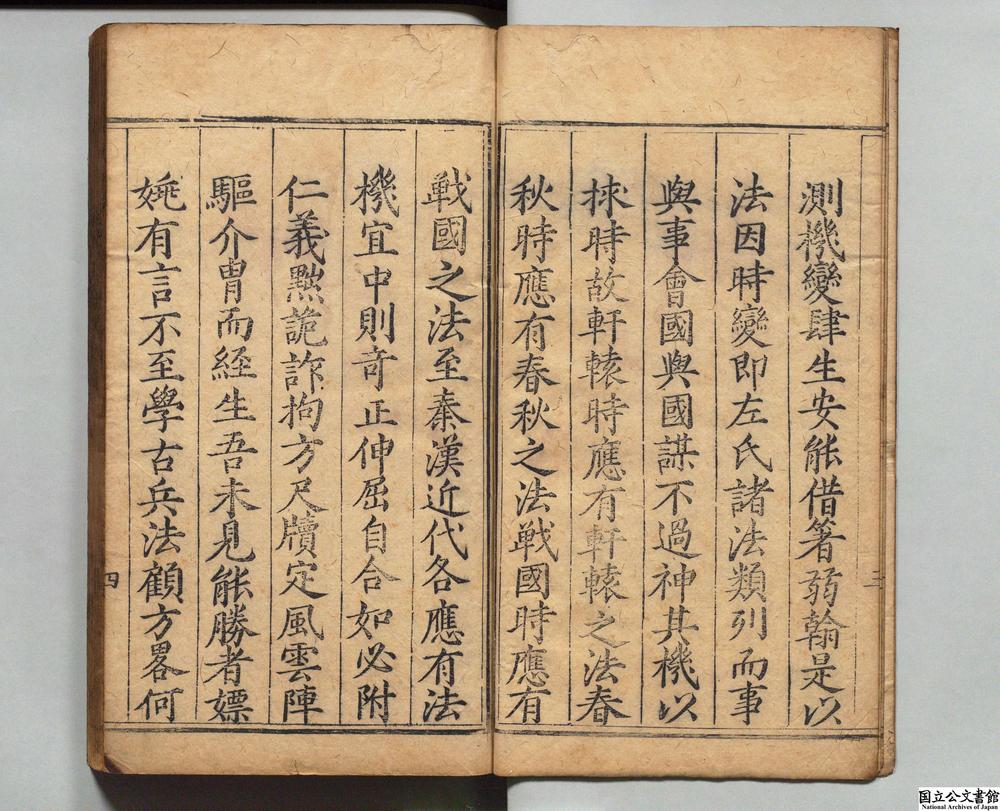 測機變肆生安能借箸弱翰是以
法因時變即左氏諸法類列而事
與事會國與國謀不過神其機以
捄時故軒轅時應有軒轅之法春
秋時應有春秋之法戰國時應有
三
戰國之法至秦漢近代各應有法
機宜中則奇正伸屈自合如必附
仁義黜詭詐拘方尺牘定風雲陣
驅介冑而経生吾未見能勝者嫖
姚有言不至學古兵法顧方畧何
四
国立公文書館
National Archives of Japan